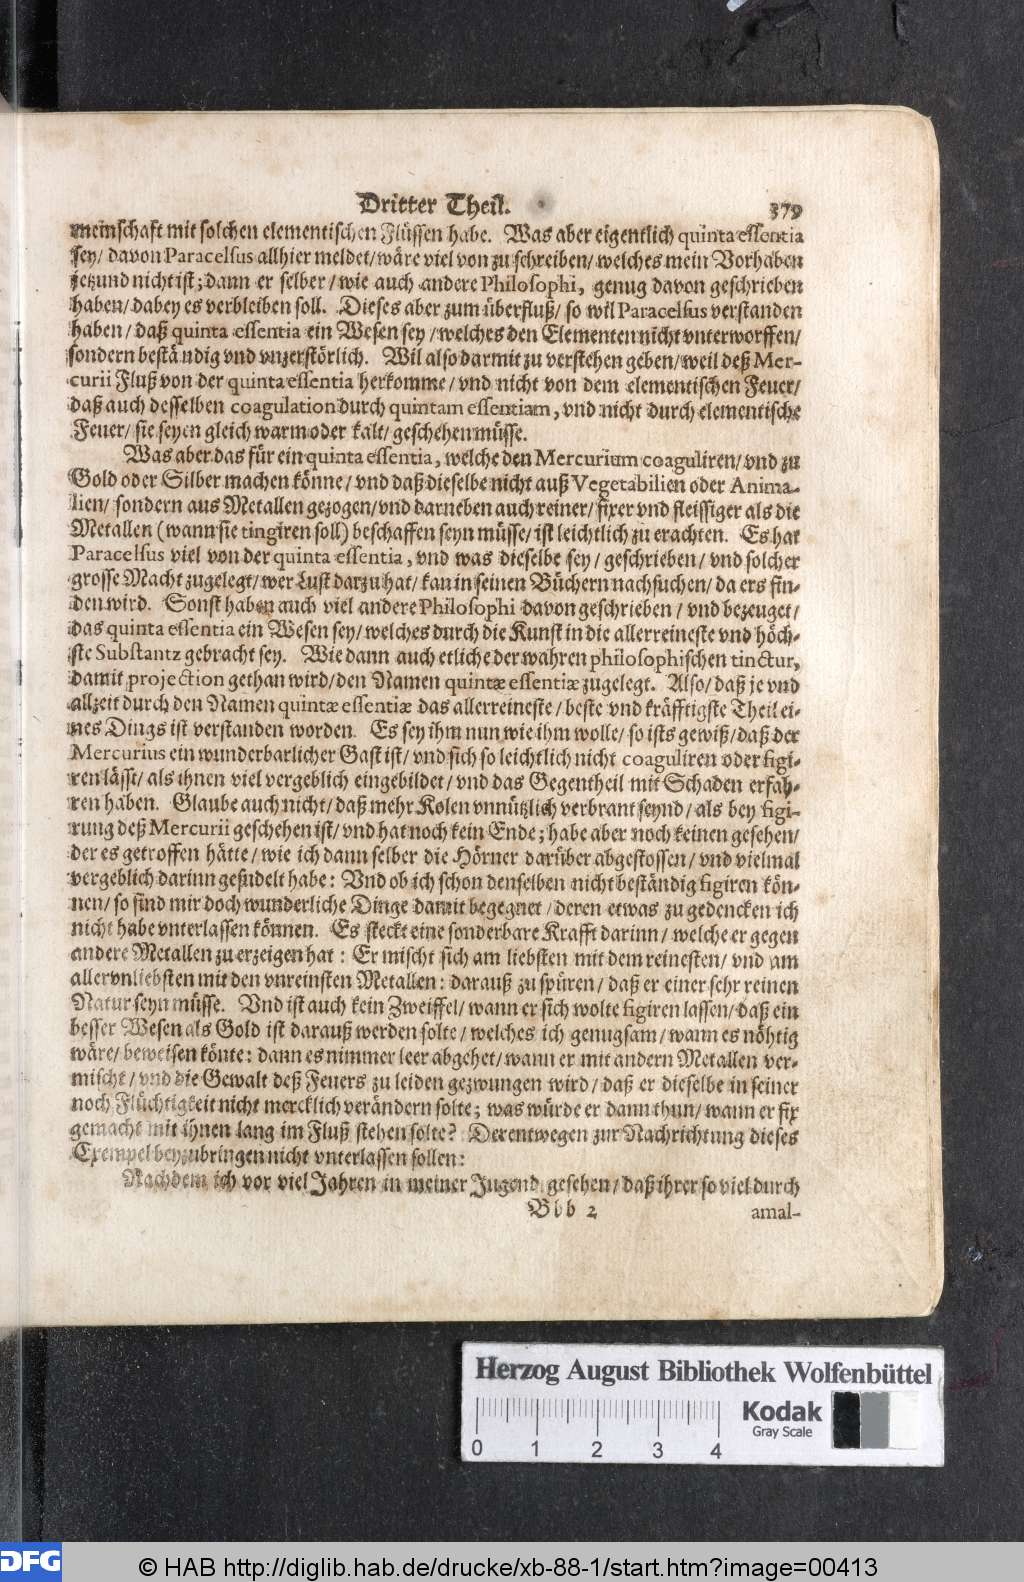 Dritter Theil. 379
meinschaft mit solchen elementischen Flüssen habe. Was aber eigentlich quinta essentia
sey/ davon Paracelsus allhier meldet/ wäre viel von zu schreiben/ welches mein Vorhaben
jetzund nicht ist; dann er selber/ wie auch andere Philosophi, genug davon geschrieben
haben/ dabey es verbleiben soll. Dieses aber zum überfluß/ so wil Paracelsus verstanden
haben/ daß quinta essentia ein Wesen sey/ welches den Elementen nicht vnterworffen/
sondern beständig vnd vnzerstörlich. Wil also darmit zu verstehen geben/ weil deß Mer-
curii Fluß von der quinta essentia herkomme/ vnd nicht von dem elementischen Feuer/
daß auch desselben coagulation durch quintam essentiam, vnd nicht durch elementische
Feuer/ sie seyen gleich warm oder kalt/ geschehen müsse.
Was aber das für ein quinta essentia, welche den Mercurium coaguliren/ vnd zu
Gold oder Silber machen könne/ vnd daß dieselbe nicht auß Vegetabilien oder Anima-
lien/ sondern aus Metallen gezogen/ vnd darneben auch reiner/ fixer vnd fleissiger als die
Metallen (wann sie tingiren soll) beschaffen seyn müsse/ ist leichtlich zu erachten. Es hat
Paracelsus viel von der quinta essentia, vnd was dieselbe sey/ geschrieben/ vnd solcher
grosse Macht zugelegt/ wer Lust darzu hat/ kan in seinen Büchern nachsuchen/ da ers fin-
den wird. Sonst haben auch viel andere Philosophi davon geschrieben/ vnd bezeuget/
das quinta essentia ein Wesen sey/ welches durch die Kunst in die allerreineste vnd höch-
ste Substantz gebracht sey. Wie dann auch etliche der wahren philosophischen tinctur,
damit projection gethan wird/ den Namen quintæ essentiæ zugelegt. Also/ daß je vnd
allzeit durch den Namen quintæ essentiæ das allerreineste/ beste vnd kräfftigste Theil ei-
nes Dings ist verstanden worden. Es sey ihm nun wie ihm wolle/ so ists gewiß/ daß der
Mercurius ein wunderbarlicher Gast ist/ vnd sich so leichtlich nicht coaguliren oder figi-
ren lässt/ als ihnen viel vergeblich eingebildet/ vnd das Gegentheil mit Schaden erfah-
ren haben. Glaube auch nicht/ daß mehr Kolen vnnützlich verbrant seynd/ als bey figi-
rung deß Mercurii geschehen ist/ vnd hat noch kein Ende; habe aber noch keinen gesehen/
der es getroffen hätte/ wie ich dann selber die Hörner darüber abgestossen/ vnd vielmal
vergeblich darinn gesudelt habe: Vnd ob ich schon denselben nicht beständig figiren kön-
nen/ so sind mir doch wunderliche Dinge damit begegnet/ deren etwas zu gedencken ich
nicht habe vnterlassen können. Es steckt eine sonderbare Krafft darinn/ welche er gegen
andere Metallen zu erzeigen hat: Er mischt sich am liebsten mit dem reinesten/ vnd am
allervnliebsten mit den vnreinsten Metallen: darauß zu spüren/ daß er einer sehr reinen
Natur seyn müsse. Vnd ist auch kein Zweiffel/ wann er sich wolte figiren lassen/ daß ein
besser Wesen als Gold ist darauß werden solte/ welches ich genugsam/ wann es nöhtig
wäre/ beweisen könte: dann es nimmer leer abgehet/ wann er mit andern Metallen ver-
mischt/ vnd die Gewalt deß Feuers zu leiden gezwungen wird/ daß er dieselbe in seiner
noch Flüchtigkeit nicht mercklich verändern solte; was würde er dann thun/ wann er fix
gemacht mit ihnen lang im Fluß stehen solte? Derentwegen zur Nachrichtung dieses
Exempel beyzubringen nicht vnterlassen sollen:
Nachdem ich vor viel Jahren in meiner Jugend gesehen/ daß ihrer so viel durch
Bbb 2 amal-
Herzog August Bibliothek Wolfenbüttel
0 1 2 3 4
Kodak
Gray Scale
DFG
© HAB http://diglib.hab.de/drucke/xb-88-1/start.htm?image=00413